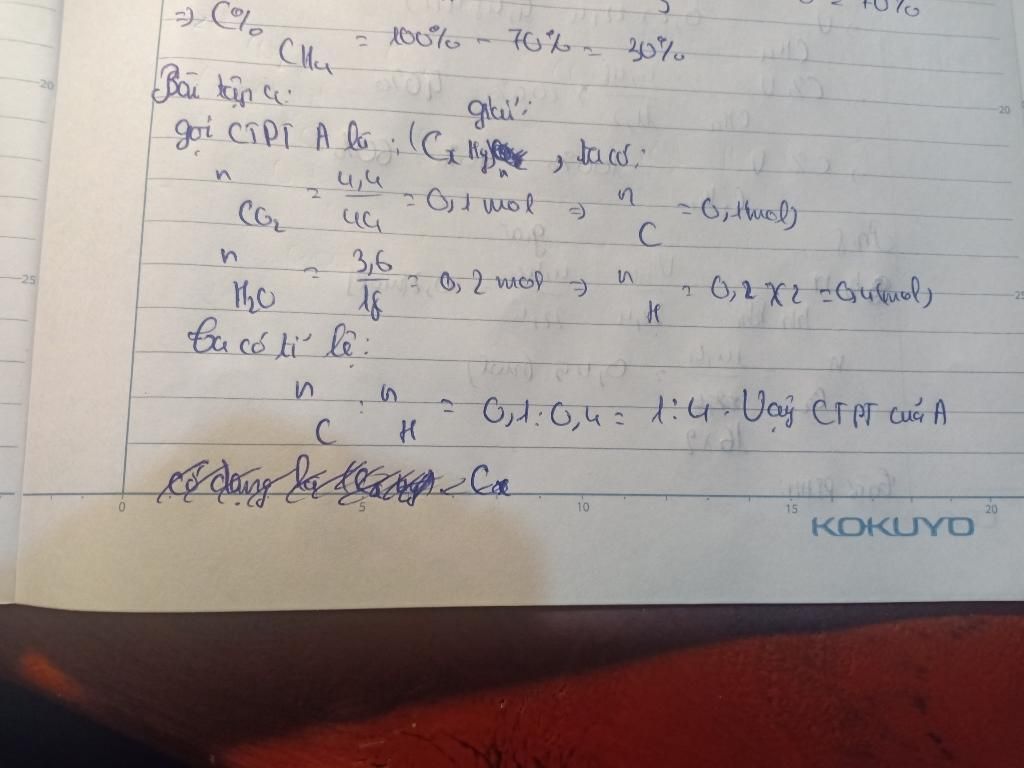 = 70%
⇒ C%
CH4 = 100% - 70% = 30%
Bài tập 4:
giải:
gọi CTPT A là : (CxHy)n , ta có:
n CO2 = 4,4/44 = 0,1 mol ⇒ n C = 0,1(mol)
n H2O = 3,6/18 = 0,2 mol ⇒ n H = 0,2 x 2 = 0,4(mol)
ta có tỉ lệ:
n C : n H = 0,1 : 0,4 = 1 : 4. Vậy CTPT của A
có dạng là Cx
0 5 10 15 20
KOKUYO
20
25
20
25